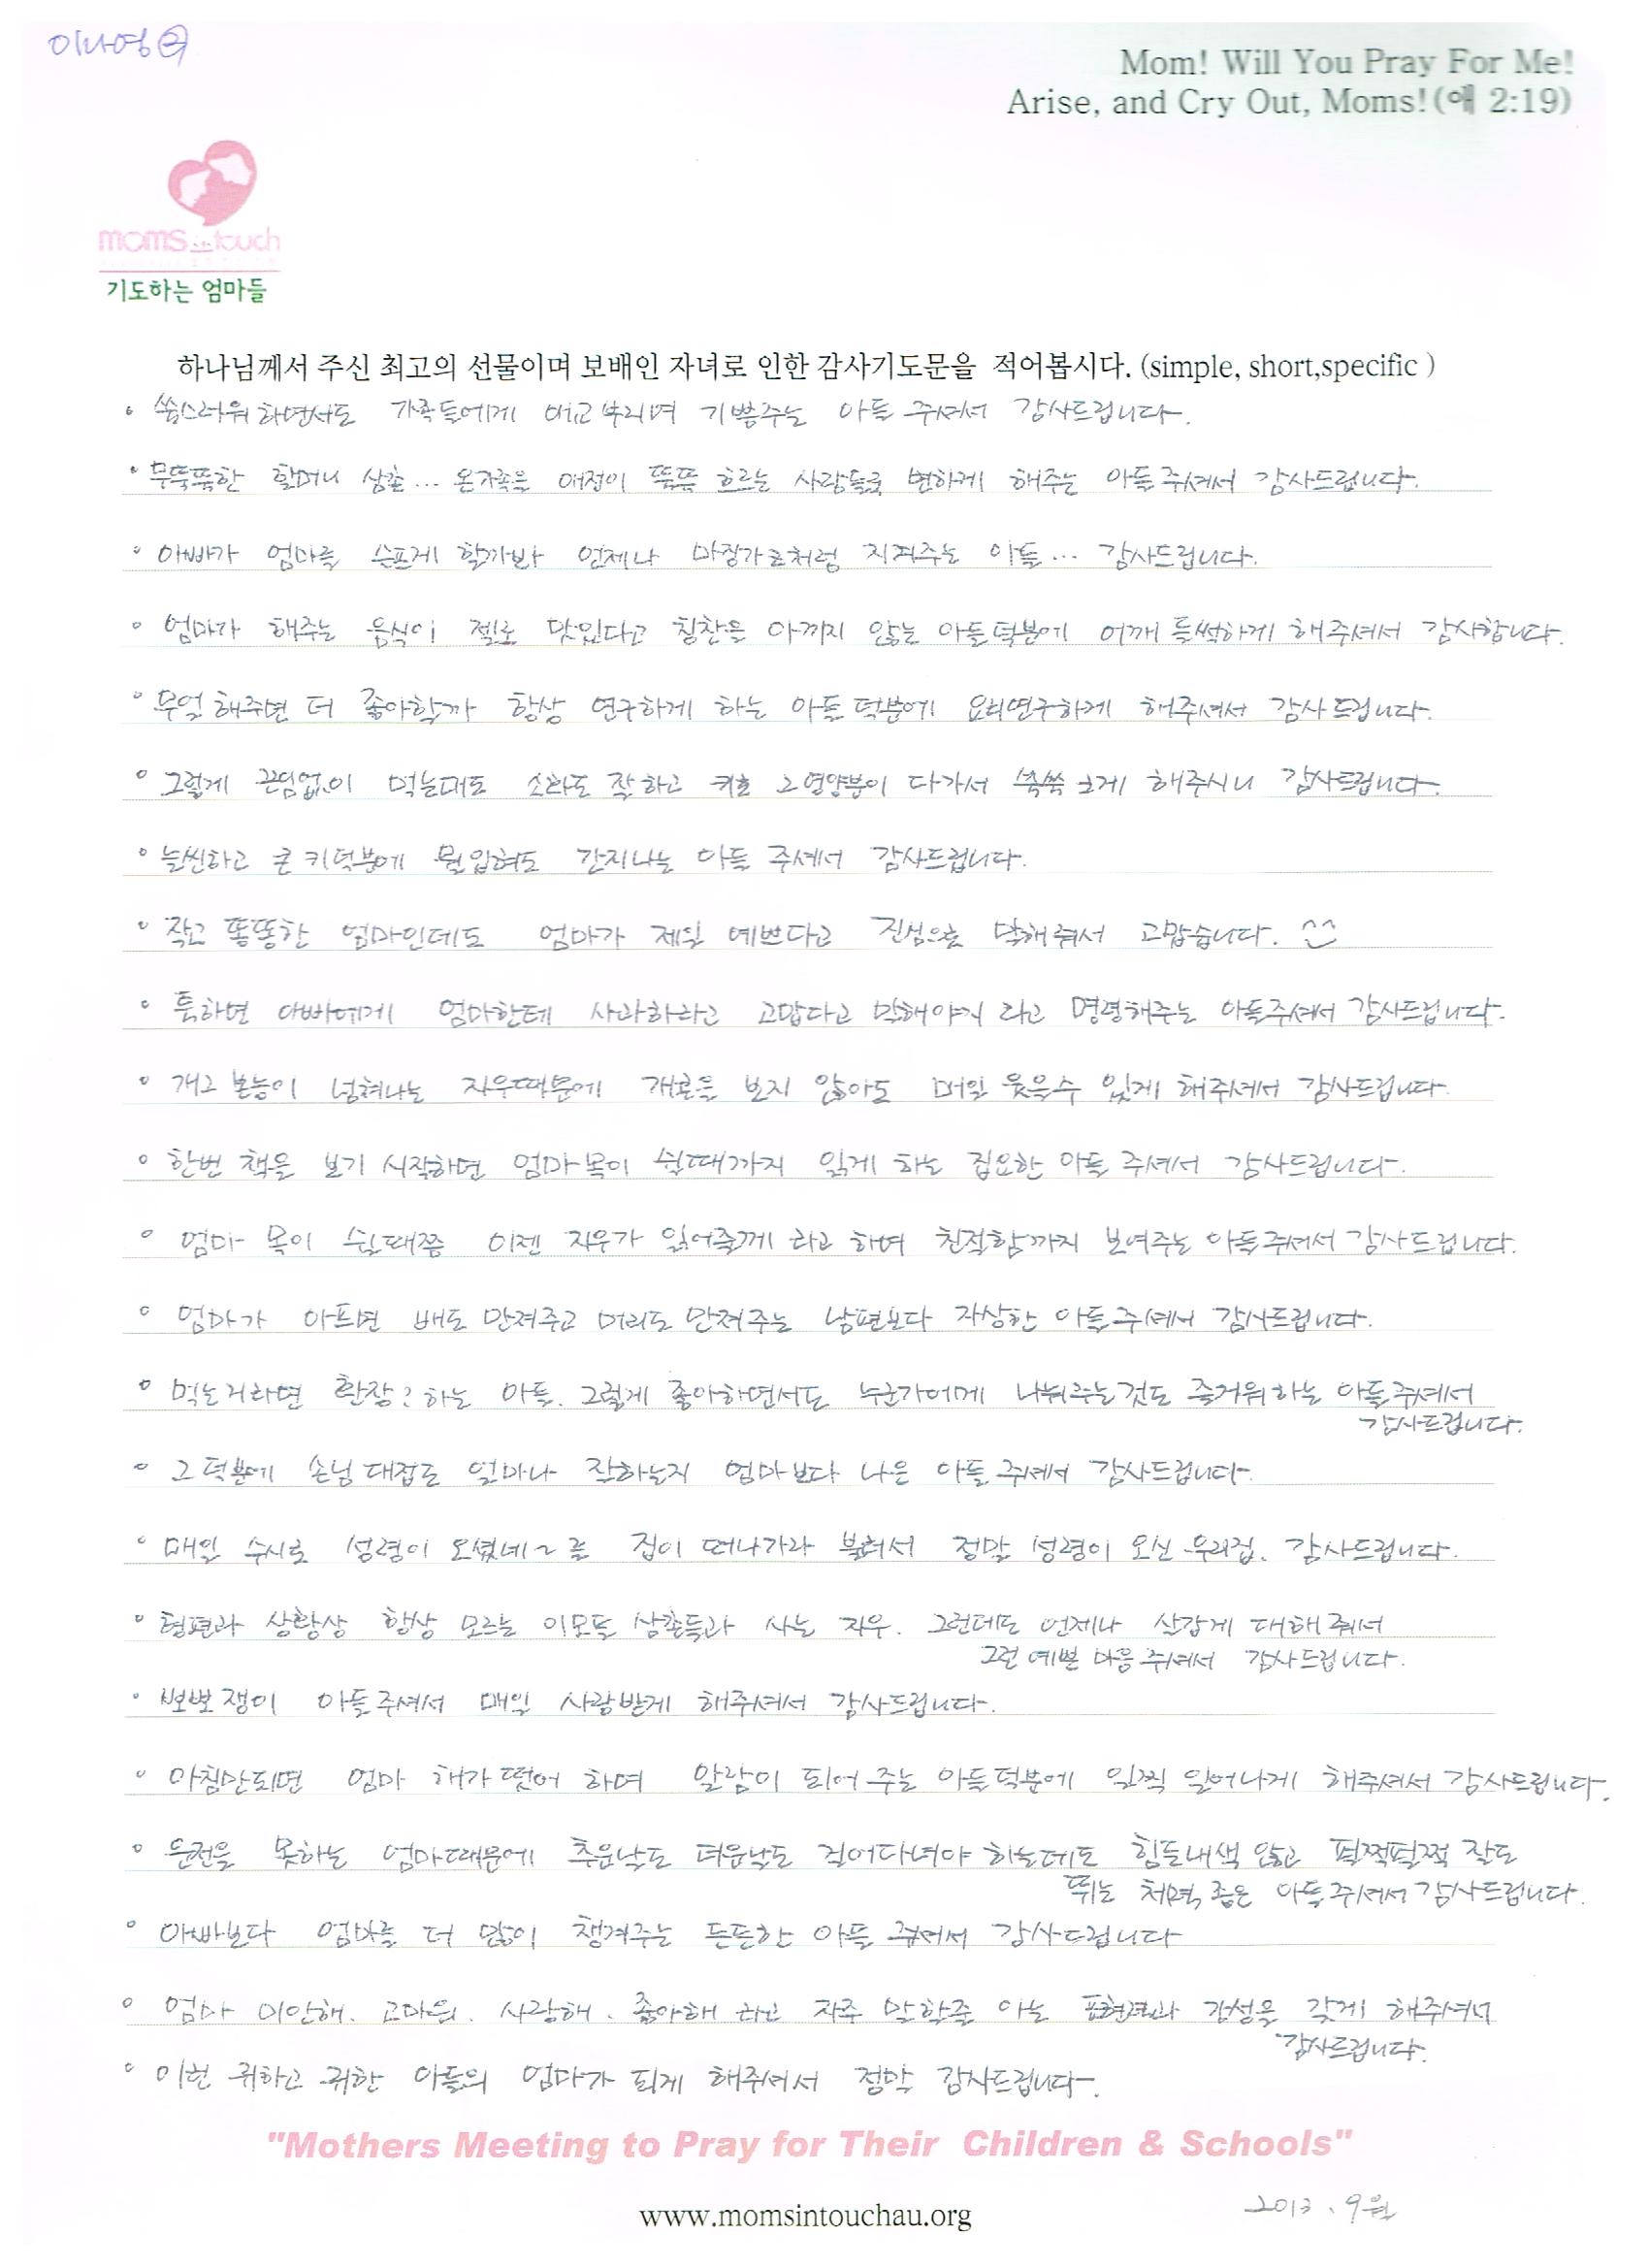 이나영②
Mom! Will You Pray For Me!
Arise, and Cry Out, Moms!(애 2:19)
moms in touch
기도하는 엄마들
하나님께서 주신 최고의 선물이며 보배인 자녀로 인한 감사기도문을 적어봅시다. (simple, short,specific )
• 쑥스러워 하면서도 가족들에게 애교부리며 기쁨주는 아들 주셔서 감사드립니다.
• 무뚝뚝한 할머니 삼촌... 온가족을 애정이 뚝뚝 흐르는 사람들로 변하게 해주는 아들 주셔서 감사드립니다.
• 아빠가 엄마를 슬프게 할까봐 언제나 마징가로처럼 지켜주는 아들... 감사드립니다.
• 엄마가 해주는 음식이 젤로 맛있다고 칭찬을 아끼지 않는 아들덕분에 어깨 들썩하게 해주셔서 감사합니다.
• 무얼해주면 더 좋아할까 항상 연구하게 하는 아들덕분에 요리연구하게 해주셔서 감사드립니다.
• 그렇게 끈임없이 먹는대도 소화도 잘하고 키로 그영양분이 다가서 쑥쑥 크게 해주시니 감사드립니다.
• 늘씬하고 큰 키덕분에 뭘입혀도 간지나는 아들 주셔서 감사드립니다.
• 작고 똥똥한 엄마인데도 엄마가 제일 예쁘다고 진심으로 말해줘서 고맙습니다. ^^
• 툭하면 아빠에게 엄마한테 사과하라고 고맙다고 말해야지 라고 명령해주는 아들주셔서 감사드립니다.
• 개그 본능이 넘쳐나는 지우때문에 개콘을 보지 않아도 매일 웃을수 있게 해주셔서 감사드립니다.
• 한번 책을 보기 시작하면 엄마목이 쉴때까지 읽게 하는 집요한 아들 주셔서 감사드립니다.
• 엄마 목이 쉴때쯤 이젠 지우가 읽어줄께 라고 하며 친절함까지 보여주는 아들주셔서 감사드립니다.
• 엄마가 아프면 배도 만져주고 머리도 만져주는 남편보다 자상한 아들주셔서 감사드립니다.
• 먹는거라면 환장? 하는 아들. 그렇게 좋아하면서도 누군가에게 나눠주는것도 즐거워하는 아들주셔서
감사드립니다.
• 그 덕분에 손님대접도 얼마나 잘하는지 엄마보다 나은 아들 주셔서 감사드립니다.
• 매일 수시로 성령이 오셨네~를 집이 떠나가라 불러서 정말 성령이 오신 우리집. 감사드립니다.
• 형편과 상황상 항상 모르는 이모들 삼촌들과 사는 지우. 그런데도 언제나 살갑게 대해줘서
그런 예쁜 마음 주셔서 감사드립니다.
• 뽀뽀쟁이 아들주셔서 매일 사랑받게 해주셔서 감사드립니다.
• 아침만되면 엄마 해가 떴어 하며 알람이 되어 주는 아들덕분에 일찍 일어나게 해주셔서 감사드립니다.
• 운전을 못하는 엄마때문에 추운날도 더운날도 걸어다녀야 하는데도 힘든내색 않고 펄쩍펄쩍 잘도
뛰는 체력 좋은 아들주셔서 감사드립니다.
• 아빠보다 엄마를 더 많이 챙겨주는 든든한 아들 주셔서 감사드립니다
• 엄마 미안해. 고마워. 사랑해. 좋아해 라고 자주 말할줄 아는 표현력과 감성을 갖게 해주셔서
감사드립니다.
• 이런 귀하고 귀한 아들의 엄마가 되게 해주셔서 정말 감사드립니다.
"Mothers Meeting to Pray for Their Children & Schools"
www.momsintouchau.org
2013. 9월